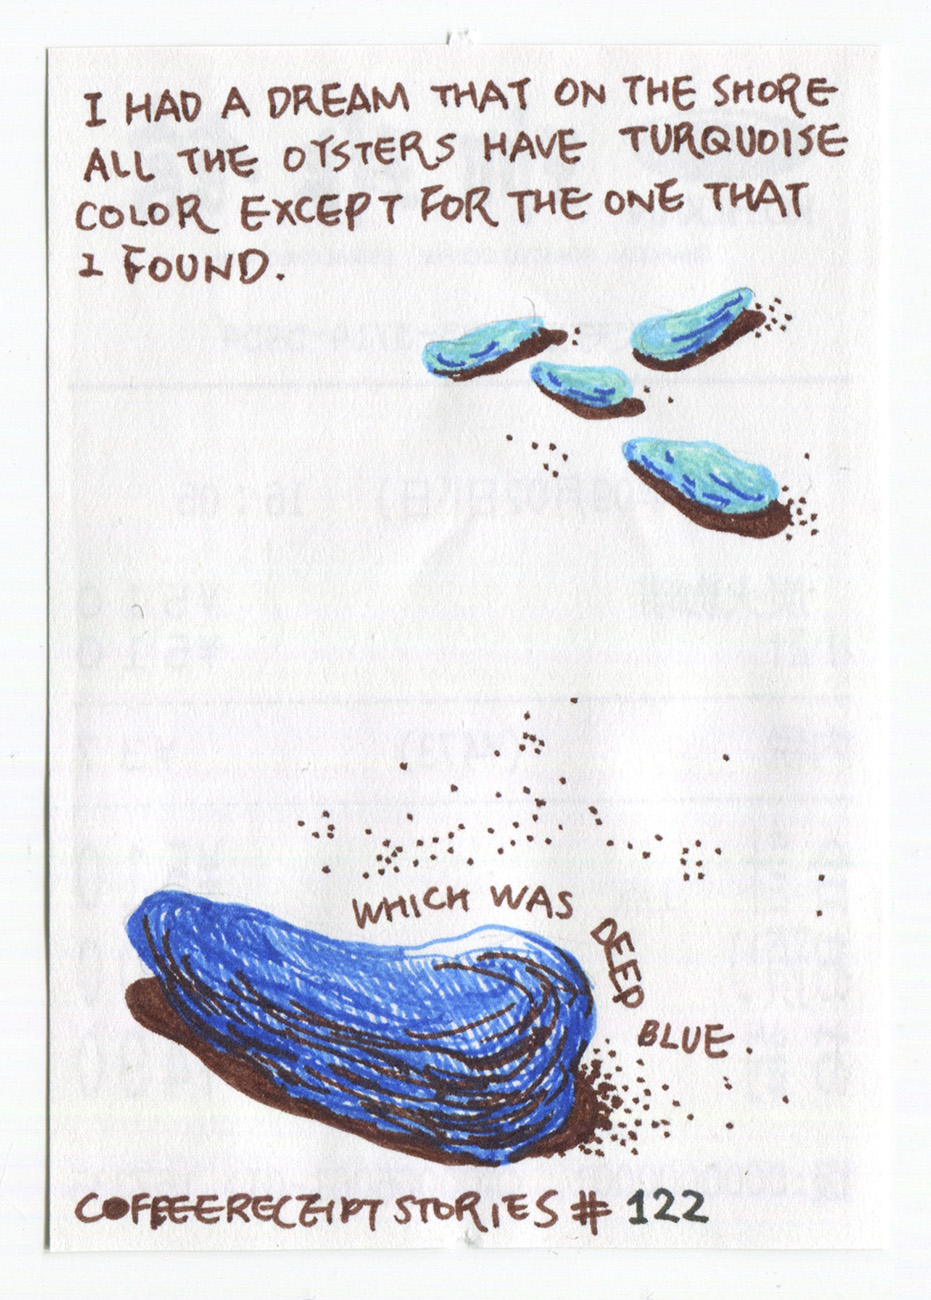 I HAD A DREAM THAT ON THE SHORE
ALL THE OYSTERS HAVE TURQUOISE
COLOR EXCEPT FOR THE ONE THAT
I FOUND.
WHICH WAS
DEEP
BLUE.
COFFEERECEIPT STORIES # 122